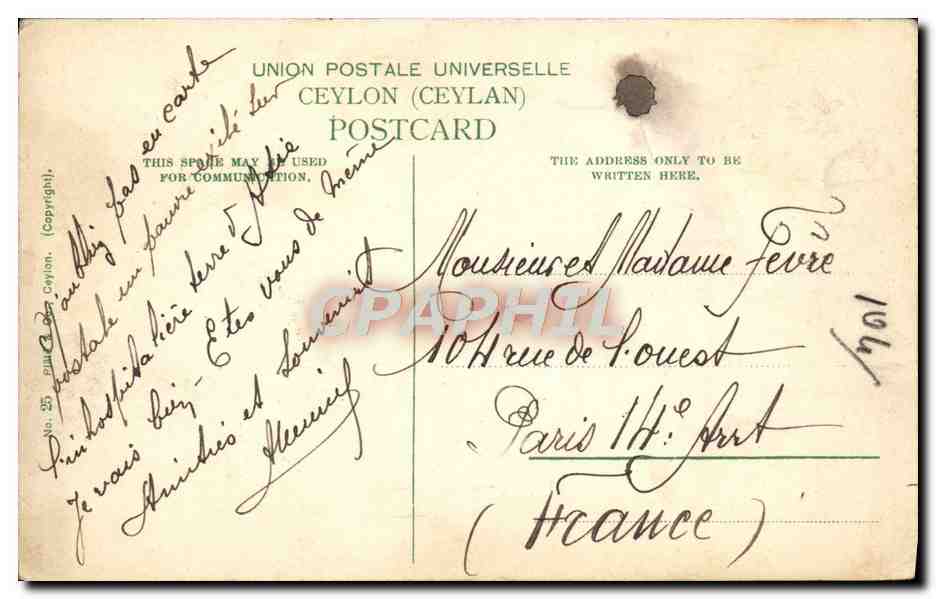 UNION POSTALE UNIVERSELLE
CEYLON (CEYLAN)
POSTCARD
THIS SPACE MAY BE USED
FOR COMMUNICATION.
THE ADDRESS ONLY TO BE
WRITTEN HERE.
pas en carte
postale un pauvre exilé sur
l'inhospitalière terre d'Asie
Je vais bien - Etes vous de même
Amitiés et Souvenirs
Monsieur et Madame Fèvre
104 rue de l'ouest
Paris 14e Arrt
(France)
No. 25 Ceylon. (Copyright).
CPAPHIL